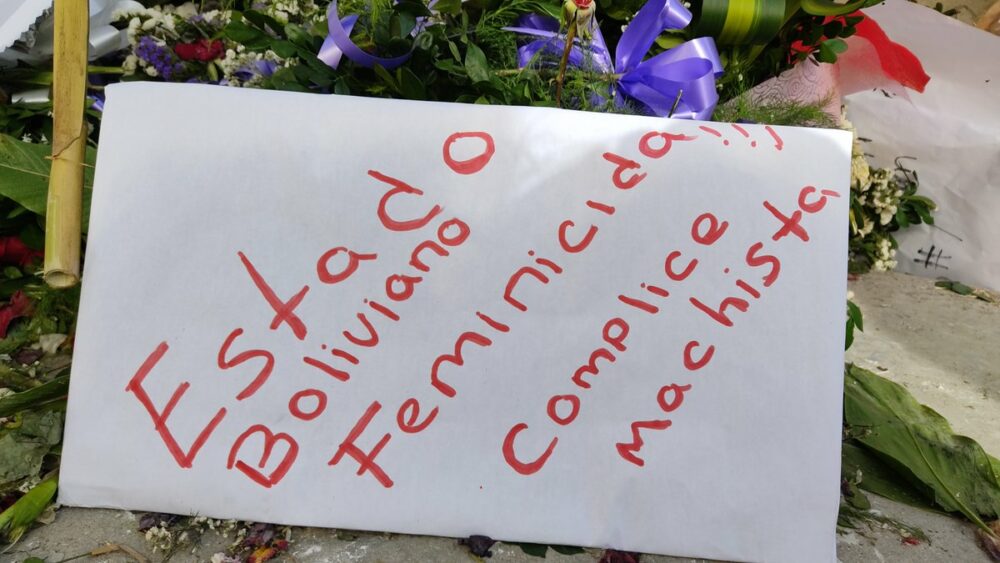 Estado
Boliviano
Feminicida!!!
Complice
machista
#